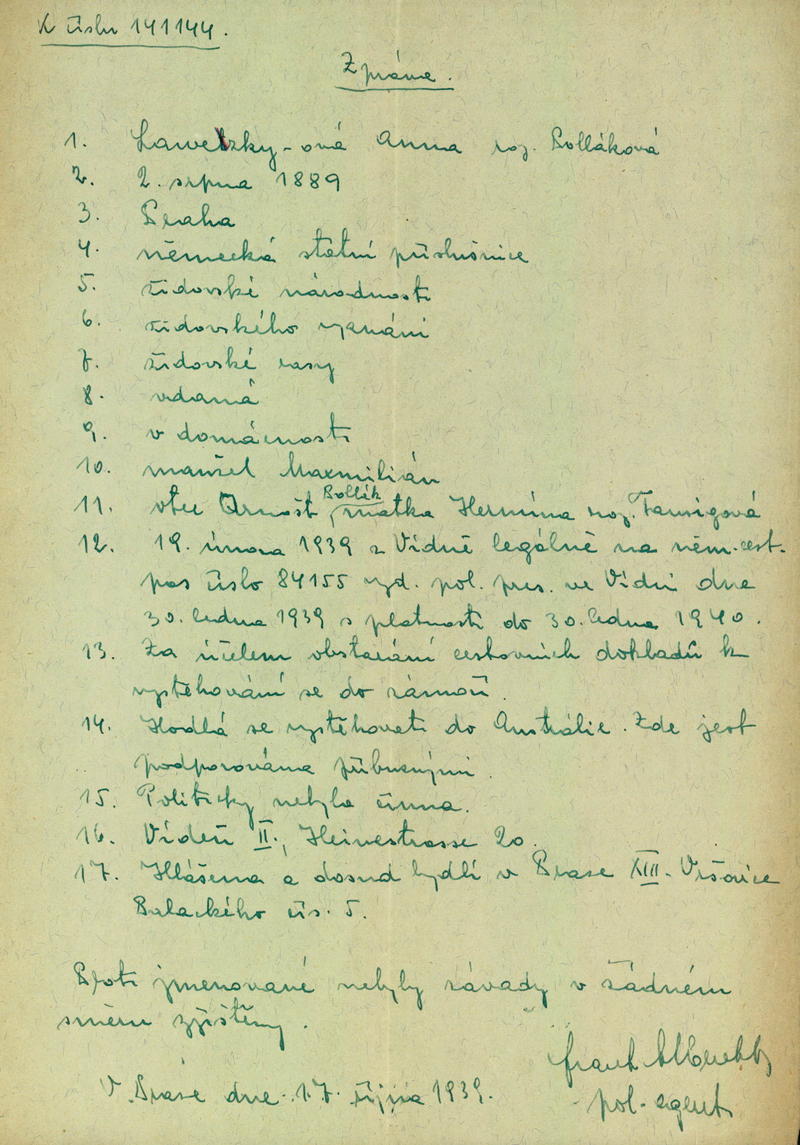 K číslu 141144.
Zpráva.
1. Lawetzky-ová Anna roz. Polláková
2. 2. srpna 1889
3. Praha
4. německá státní příslušnice
5. židovské národnosti
6. židovského vyznání
7. židovské rasy
8. vdaná
9. v domácnosti
10. manžel Maxmilián
11. otec Arnošt Pollák, matka Hermína roz. Taussigová
12. 19. února 1939 z Vídně legálně na něm. cest.
pas číslo 84155 vyd. pol. pres. ve Vídni dne
30. ledna 1939 s platností do 30. ledna 1940.
13. Za účelem obstarání cestovních dokladů k
vystěhování se do zámoří.
14. Hodlá se vystěhovati do Austrálie. Zde jest
podporována příbuznými.
15. Politicky nebyla činna.
16. Vídeň II., Heinestrasse 20.
17. Hlášena a dosud bydlí v Praze XIII-Vršovice
Palackého čís. 5.
Proti jmenované nebyly závady v žádném
směru zjištěny.
V Praze dne 17. října 1939.
pol. agent